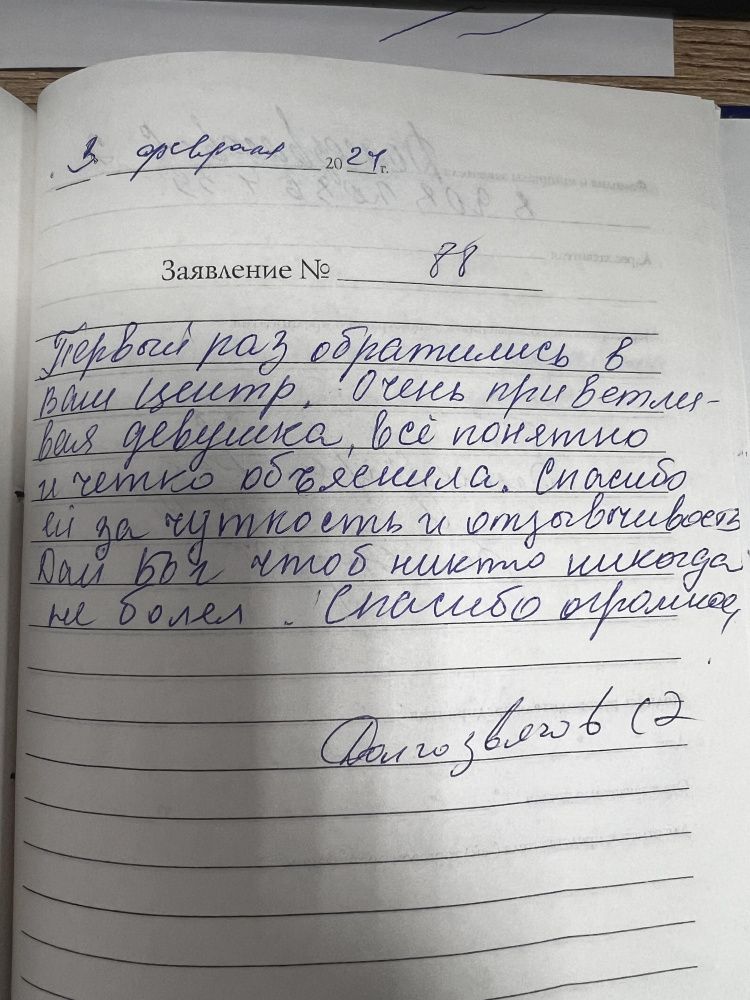 3 февраля 2024 г.
Заявление № 88
Первый раз обратились в
ваш центр. Очень приветли-
вая девушка, всё понятно
и четко объяснила. Спасибо
ей за чуткость и отзывчивость
Дай Бог чтоб никто никогда
не болел. Спасибо огромное,
Долгозвягов